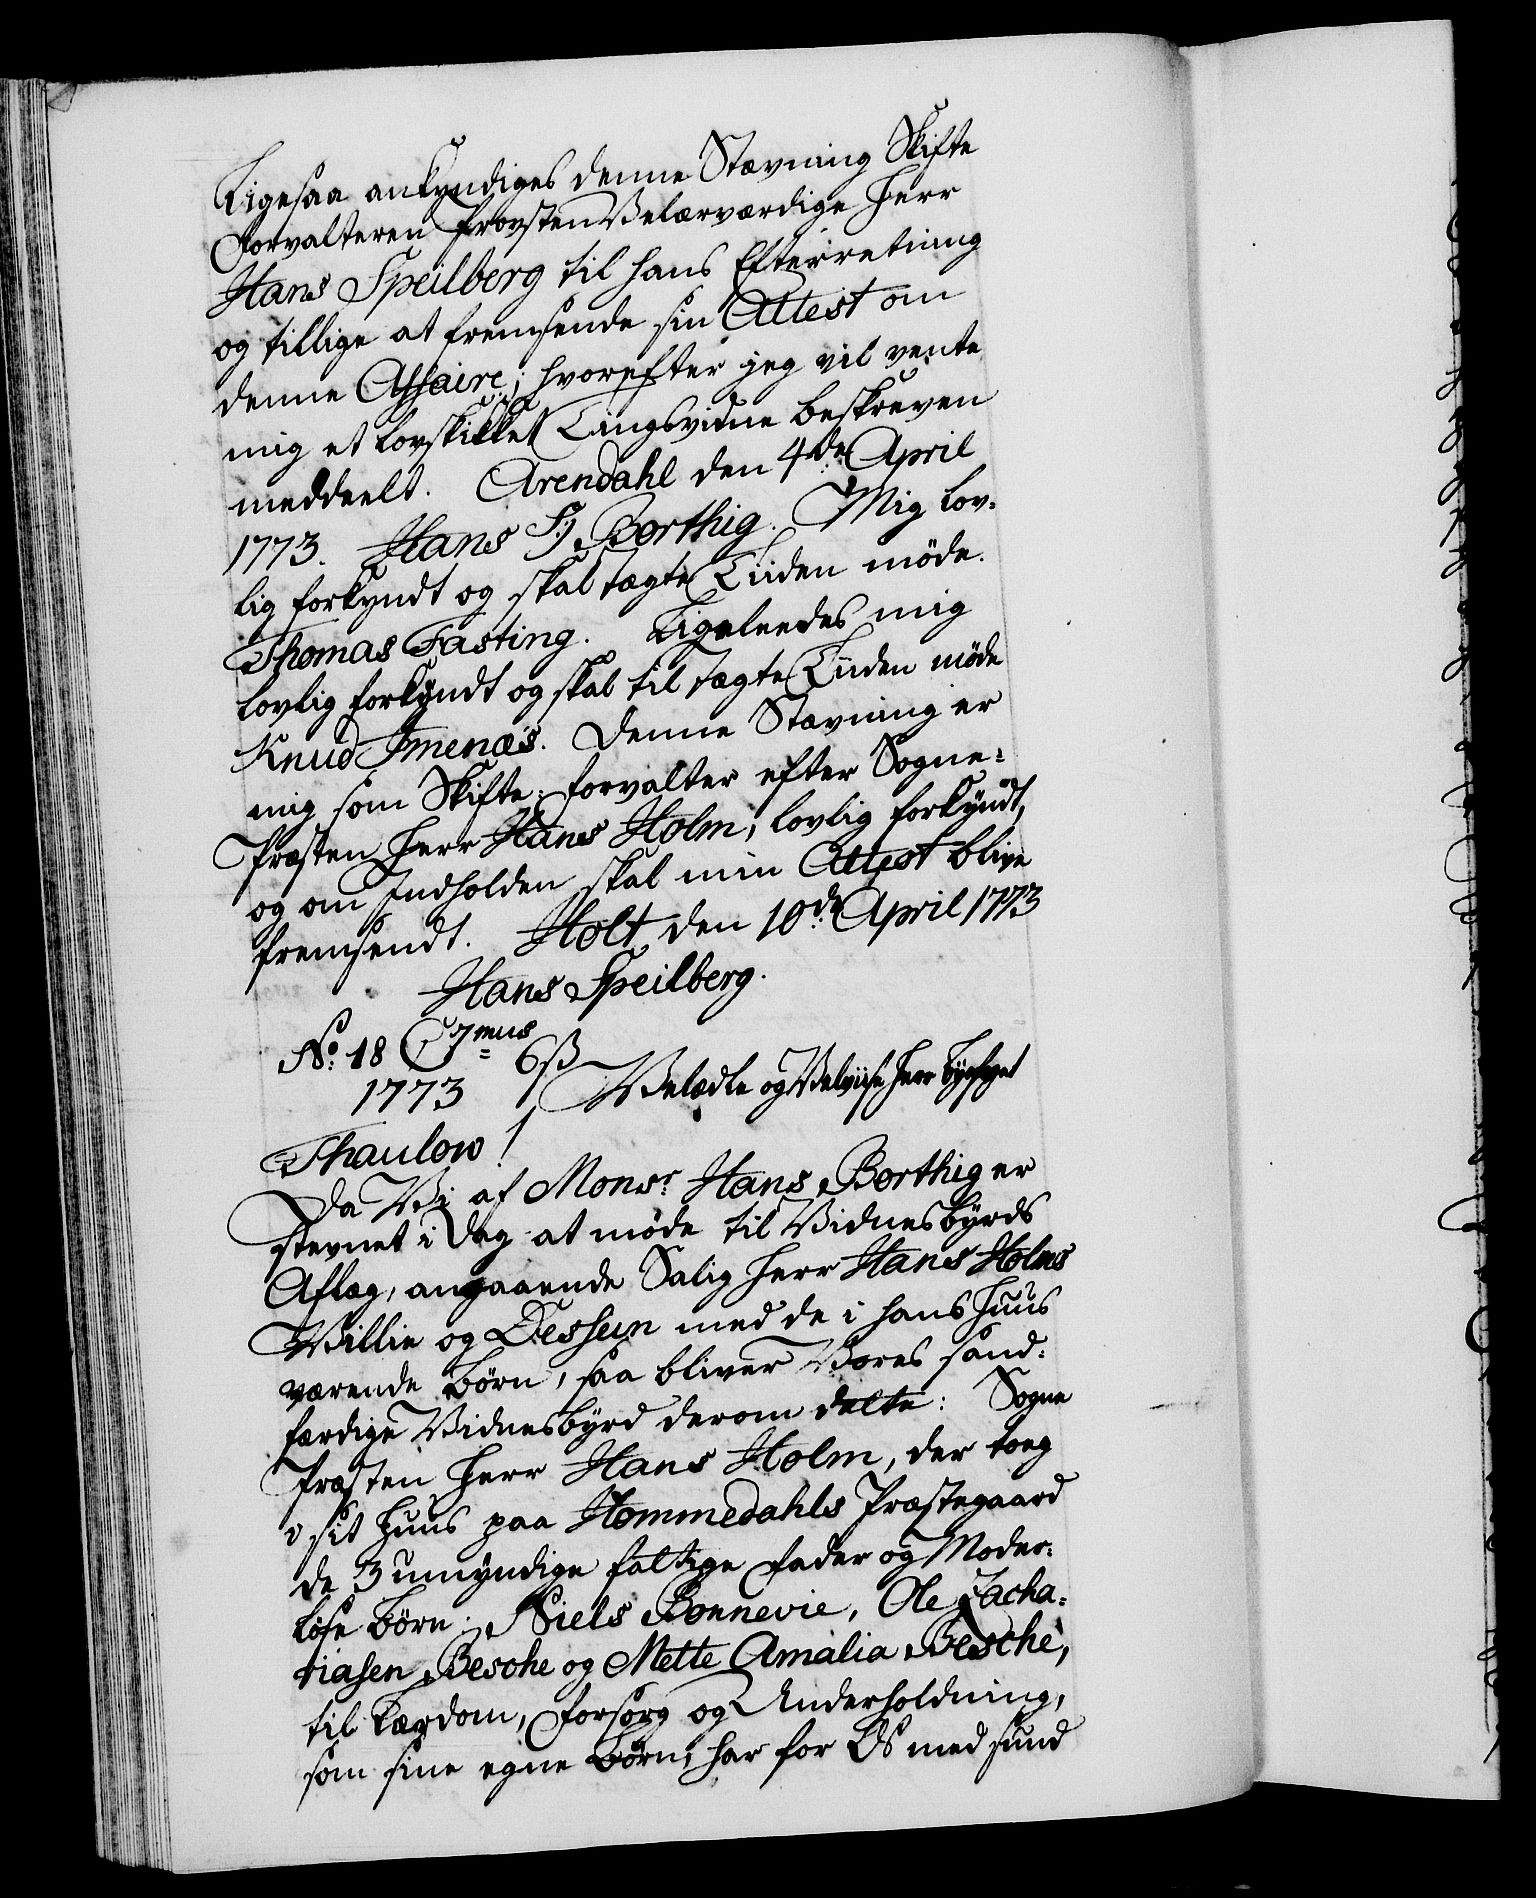 Ligesaa ankyndiges denne Stævning Skifte
Forvalteren Provsten Velærværdige Herr
Hans Speilberg til hans Efterretning
og tillige at fremsende sin Attest om
denne Affaire; hvorefter jeg vil vente
mig et lovskikket Tingsvidne beskreven
meddeelt. Arendahl den 4de April
1773. Hans Sj. Borthig. Mig lov-
lig forkyndt og skal sagte Tiiden møde.
Thomas Fasting. Ligeleedes mig
lovlig forkyndt og skal til sagte Tiiden møde
Knud Imenæs. Denne Stævning er
mig som Skifte-forvalter efter Sogne-
Præsten Herr Hans Holm, lovlig forkyndt,
og om Indholden skal min Attest blive
fremsendt. Holt den 10de April 1773
Hans Speilberg.
No. 18 C7mus
1773 6ß Velædle og Velviise Herr Byefoget
Thaulow!
Da Vi af Monsr. Hans Borthig er
stevnet i Dag at møde til Vidnesbyrds
Aflæg, angaaende Salig Herr Hans Holms
Villie og Dessein med de i hans Huus
værende Børn, saa bliver Vores sand-
færdige Vidnesbyrd derom dette: Sogne
Præsten Herr Hans Holm, der toeg
i sit Huus paa Hommedahls Præstegaard
de 3 umyndige fattige Fader og Moder-
løse Børn: Niels Bonnevie, Ole Zacha-
riasen Besche og Mette Amalia Besche,
til Lærdom, Forsorg og Underholdning,
som sine egne Børn; har for Os med sund